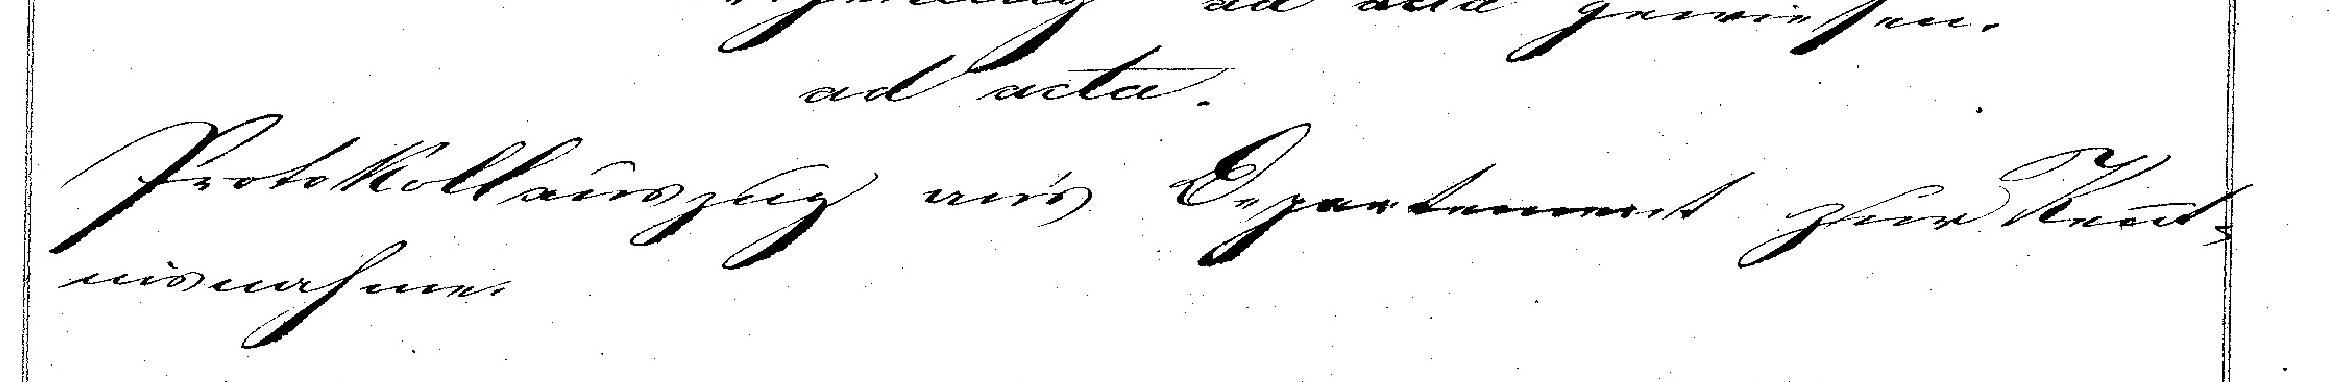 ad acta gewiesen.
ad acta.
Protokollauszug an's Departement zur Kent-
nisnahme.